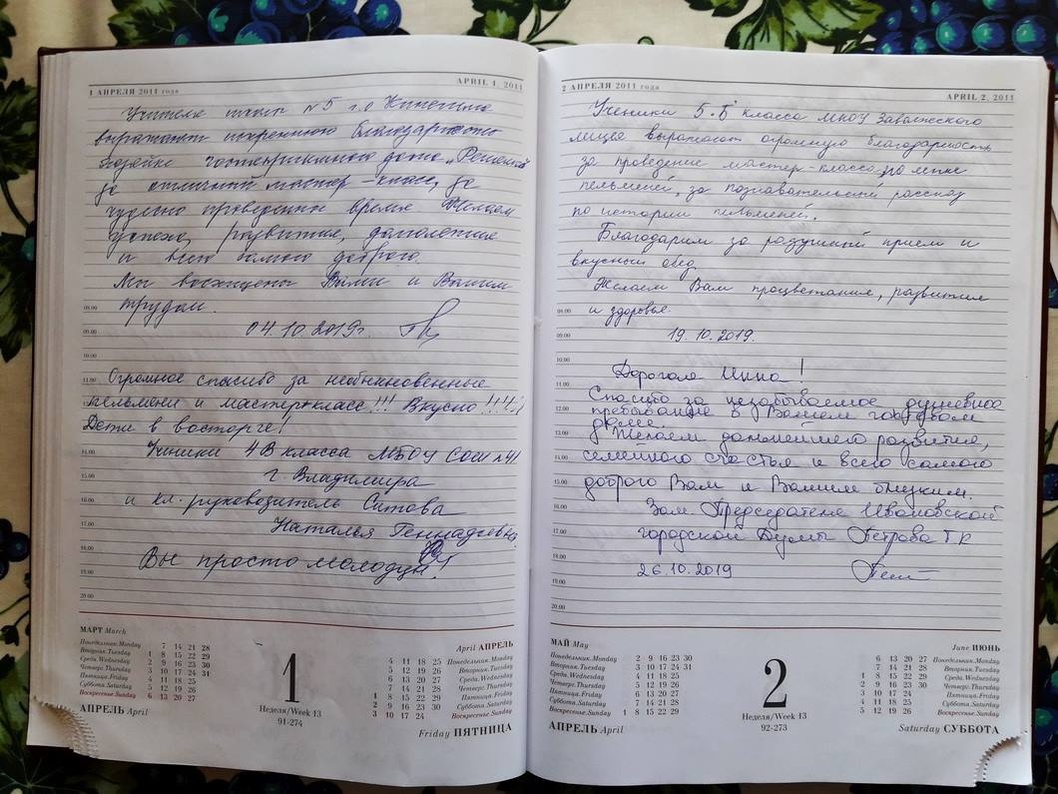 1 АПРЕЛЯ 2011 года
APRIL 1, 2011
Учителя школы №5 г.о Кинешма
выражают искреннюю благодарность
хозяйке гостеприимного дома „Решемский
за отличный мастер-класс, за
чудесно проведенное время. Желаем
успеха, развития, долголетия
и всего самого доброго.
Мы восхищены Вами и Вашим
трудом.
04.10.2019г.
Огромное спасибо за необыкновенные
пельмени и мастер-класс!!! Вкусно!!!!
Дети в восторге!
Ученики 4В класса МБОУ СОШ №41
г. Владимира
и кл. руководитель Ситова
Наталья Геннадьевна
Вы просто молодцы!
08.00
09.00
10.00
11.00
12.00
13.00
14.00
15.00
16.00
17.00
18.00
19.00
20.00
МАРТ March
Понедельник.Monday 7 14 21 28
Вторник.Tuesday 1 8 15 22 29
Среда.Wednesday 2 9 16 23 30
Четверг.Thursday 3 10 17 24 31
Пятница.Friday 4 11 18 25
Суббота.Saturday 5 12 19 26
Воскресенье.Sunday 6 13 20 27
АПРЕЛЬ April
1
Неделя/Week 13
91-274
April АПРЕЛЬ
4 11 18 25 Понедельник.Monday
5 12 19 26 Вторник.Tuesday
6 13 20 27 Среда.Wednesday
7 14 21 28 Четверг.Thursday
1 8 15 22 29 Пятница.Friday
2 9 16 23 30 Суббота.Saturday
3 10 17 24 Воскресенье.Sunday
Friday ПЯТНИЦА
2 АПРЕЛЯ 2011 года
APRIL 2, 2011
Ученики 5.Б класса МКОУ Заволжского
лицея выражают огромную благодарность
за проведение мастер-класса по лепке
пельменей, за познавательный рассказ
по истории пельменей.
Благодарим за радушный прием и
вкусный обед.
Желаем Вам процветания, развития
и здоровья.
19.10.2019.
Дорогая Инна!
Спасибо за незабываемое душевное
пребывание в Вашем чудном
доме.
Желаем дальнейшего развития,
семейного счастья и всего самого
доброго Вам и Вашим близким.
Зам. Председателя Ивановской
городской Думы Петрова Т.К
26.10.2019
08.00
09.00
10.00
11.00
12.00
13.00
14.00
15.00
16.00
17.00
18.00
19.00
20.00
МАЙ May
Понедельник.Monday 2 9 16 23 30
Вторник.Tuesday 3 10 17 24 31
Среда.Wednesday 4 11 18 25
Четверг.Thursday 5 12 19 26
Пятница.Friday 6 13 20 27
Суббота.Saturday 7 14 21 28
Воскресенье.Sunday 1 8 15 22 29
АПРЕЛЬ April
2
Неделя/Week 13
92-273
June ИЮНЬ
6 13 20 27 Понедельник.Monday
7 14 21 28 Вторник.Tuesday
1 8 15 22 29 Среда.Wednesday
2 9 16 23 30 Четверг.Thursday
3 10 17 24 Пятница.Friday
4 11 18 25 Суббота.Saturday
5 12 19 26 Воскресенье.Sunday
Saturday СУББОТА